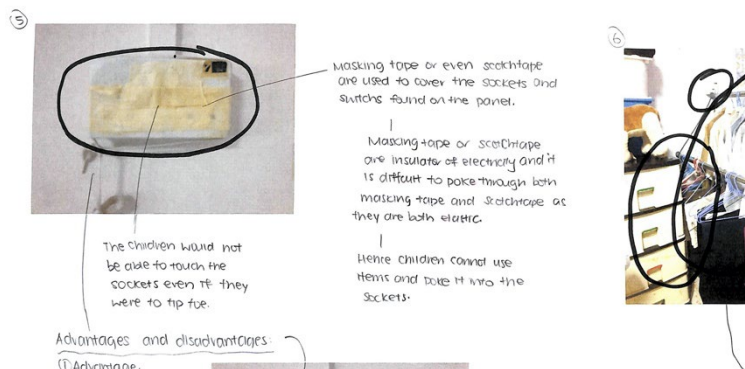 5
Masking tape or even scotchtape
are used to cover the sockets and
switchs found on the panel.
Masking tape or scotchtape
are insulator of electricity and it
is difficult to poke through both
masking tape and scotchtape as
they are both elastic.
Hence children cannot use
items and poke it into the
sockets.
The children would not
be able to touch the
sockets even if they
were to tip toe.
Advantages and disadvantages:
① Advantage.
6